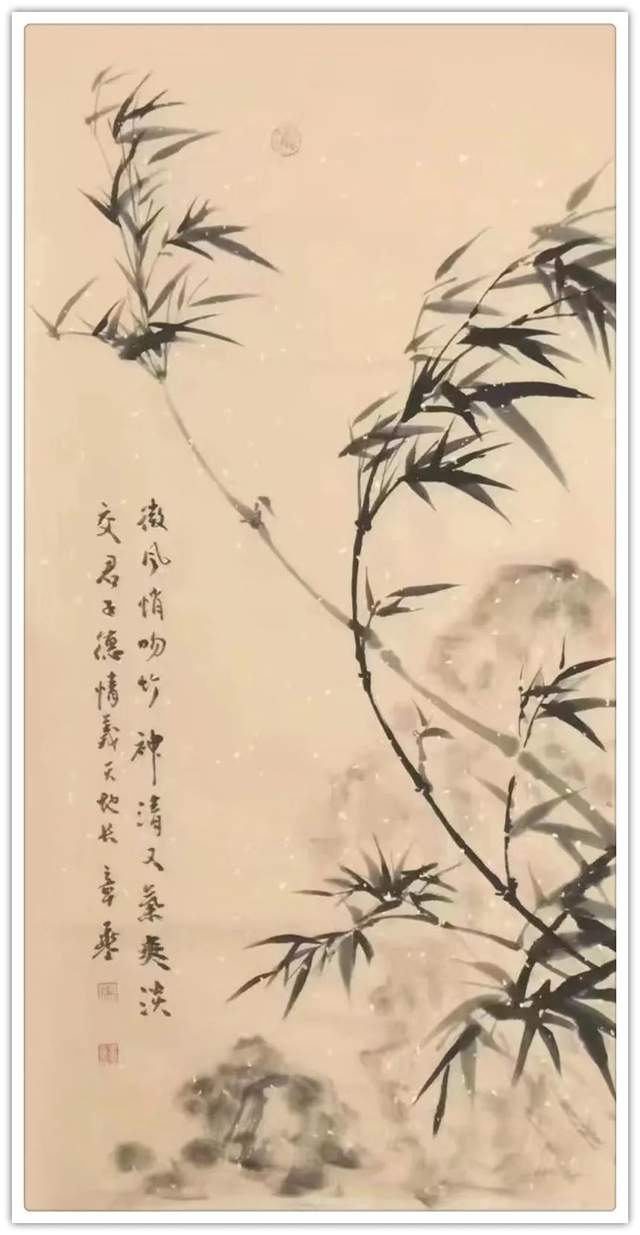 微风悄吻竹神清又气爽淡
交君子德情義天地长章